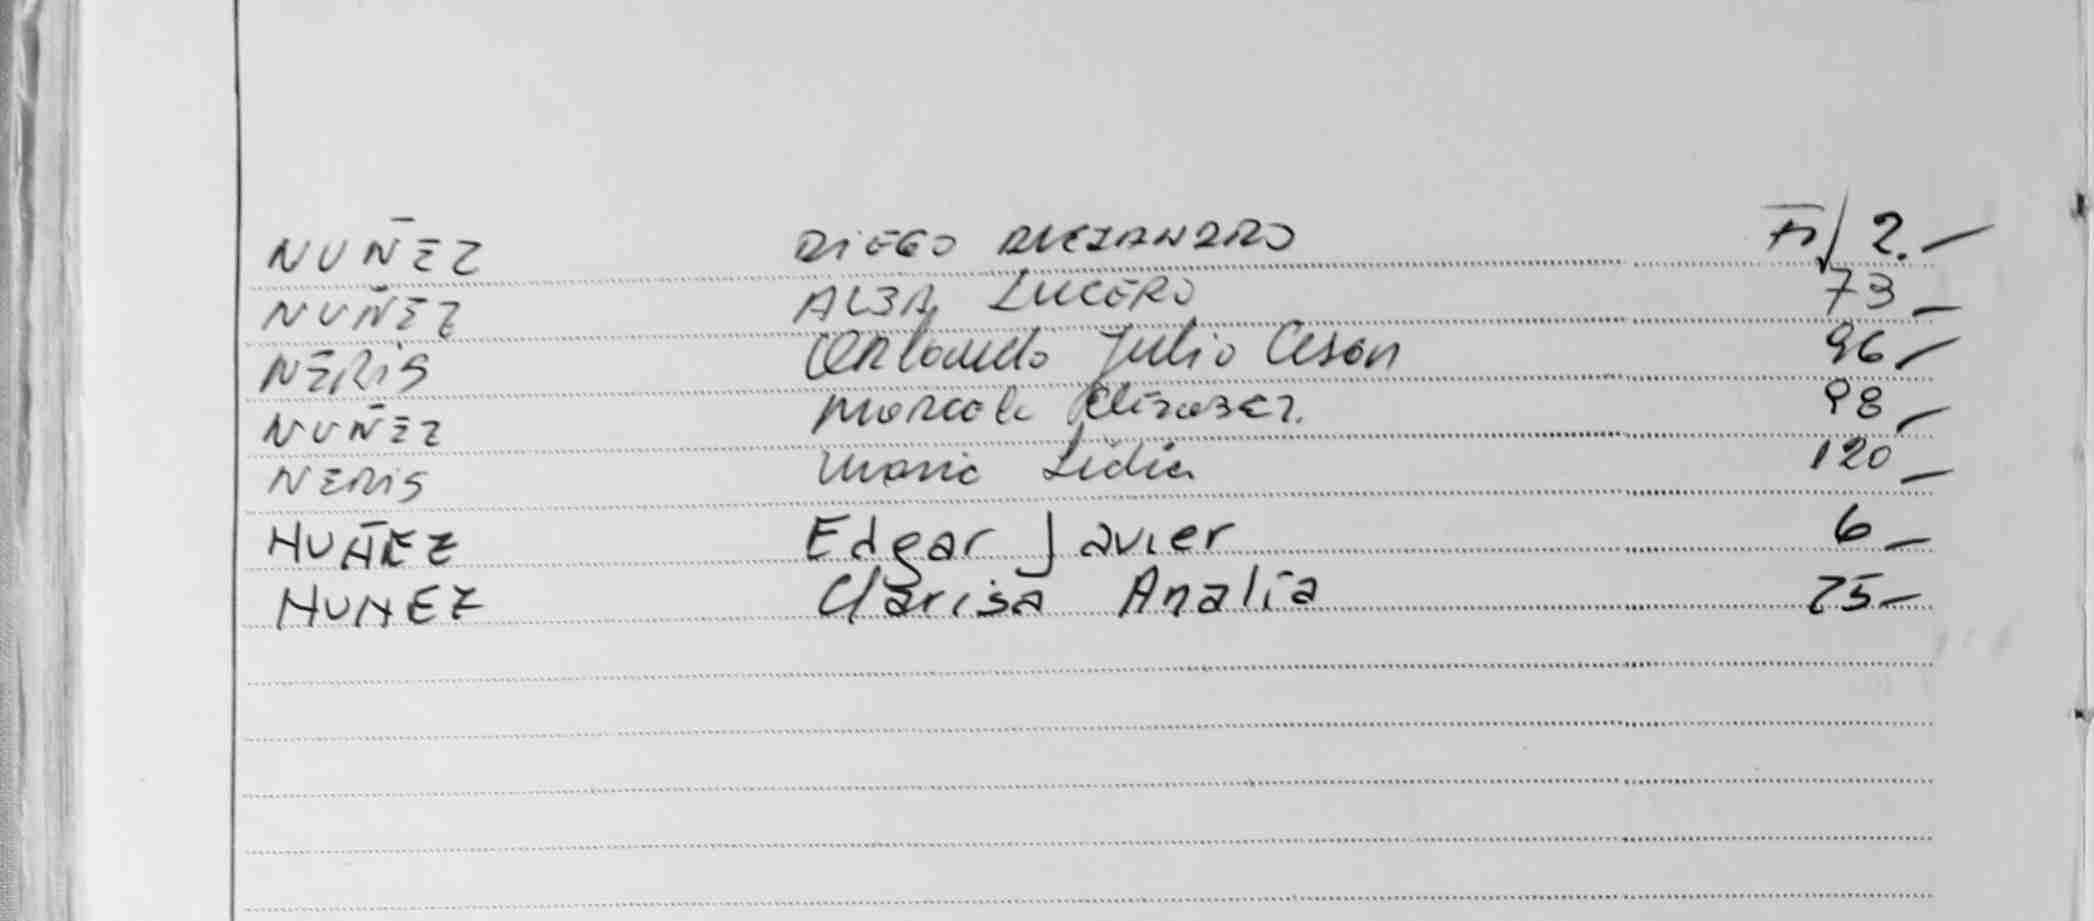 NUÑEZ DIEGO ALEJANDRO Fº/ 2.-
NUÑEZ ALBA LUCERO 73-
NERIS Orlando Julio Cesar 96-
NUÑEZ Marcela Elizabet. 98-
NERIS Maria Lidia 120-
NUÑEZ Edgar Javier 6-
NUNEZ Clarisa Analía 25-